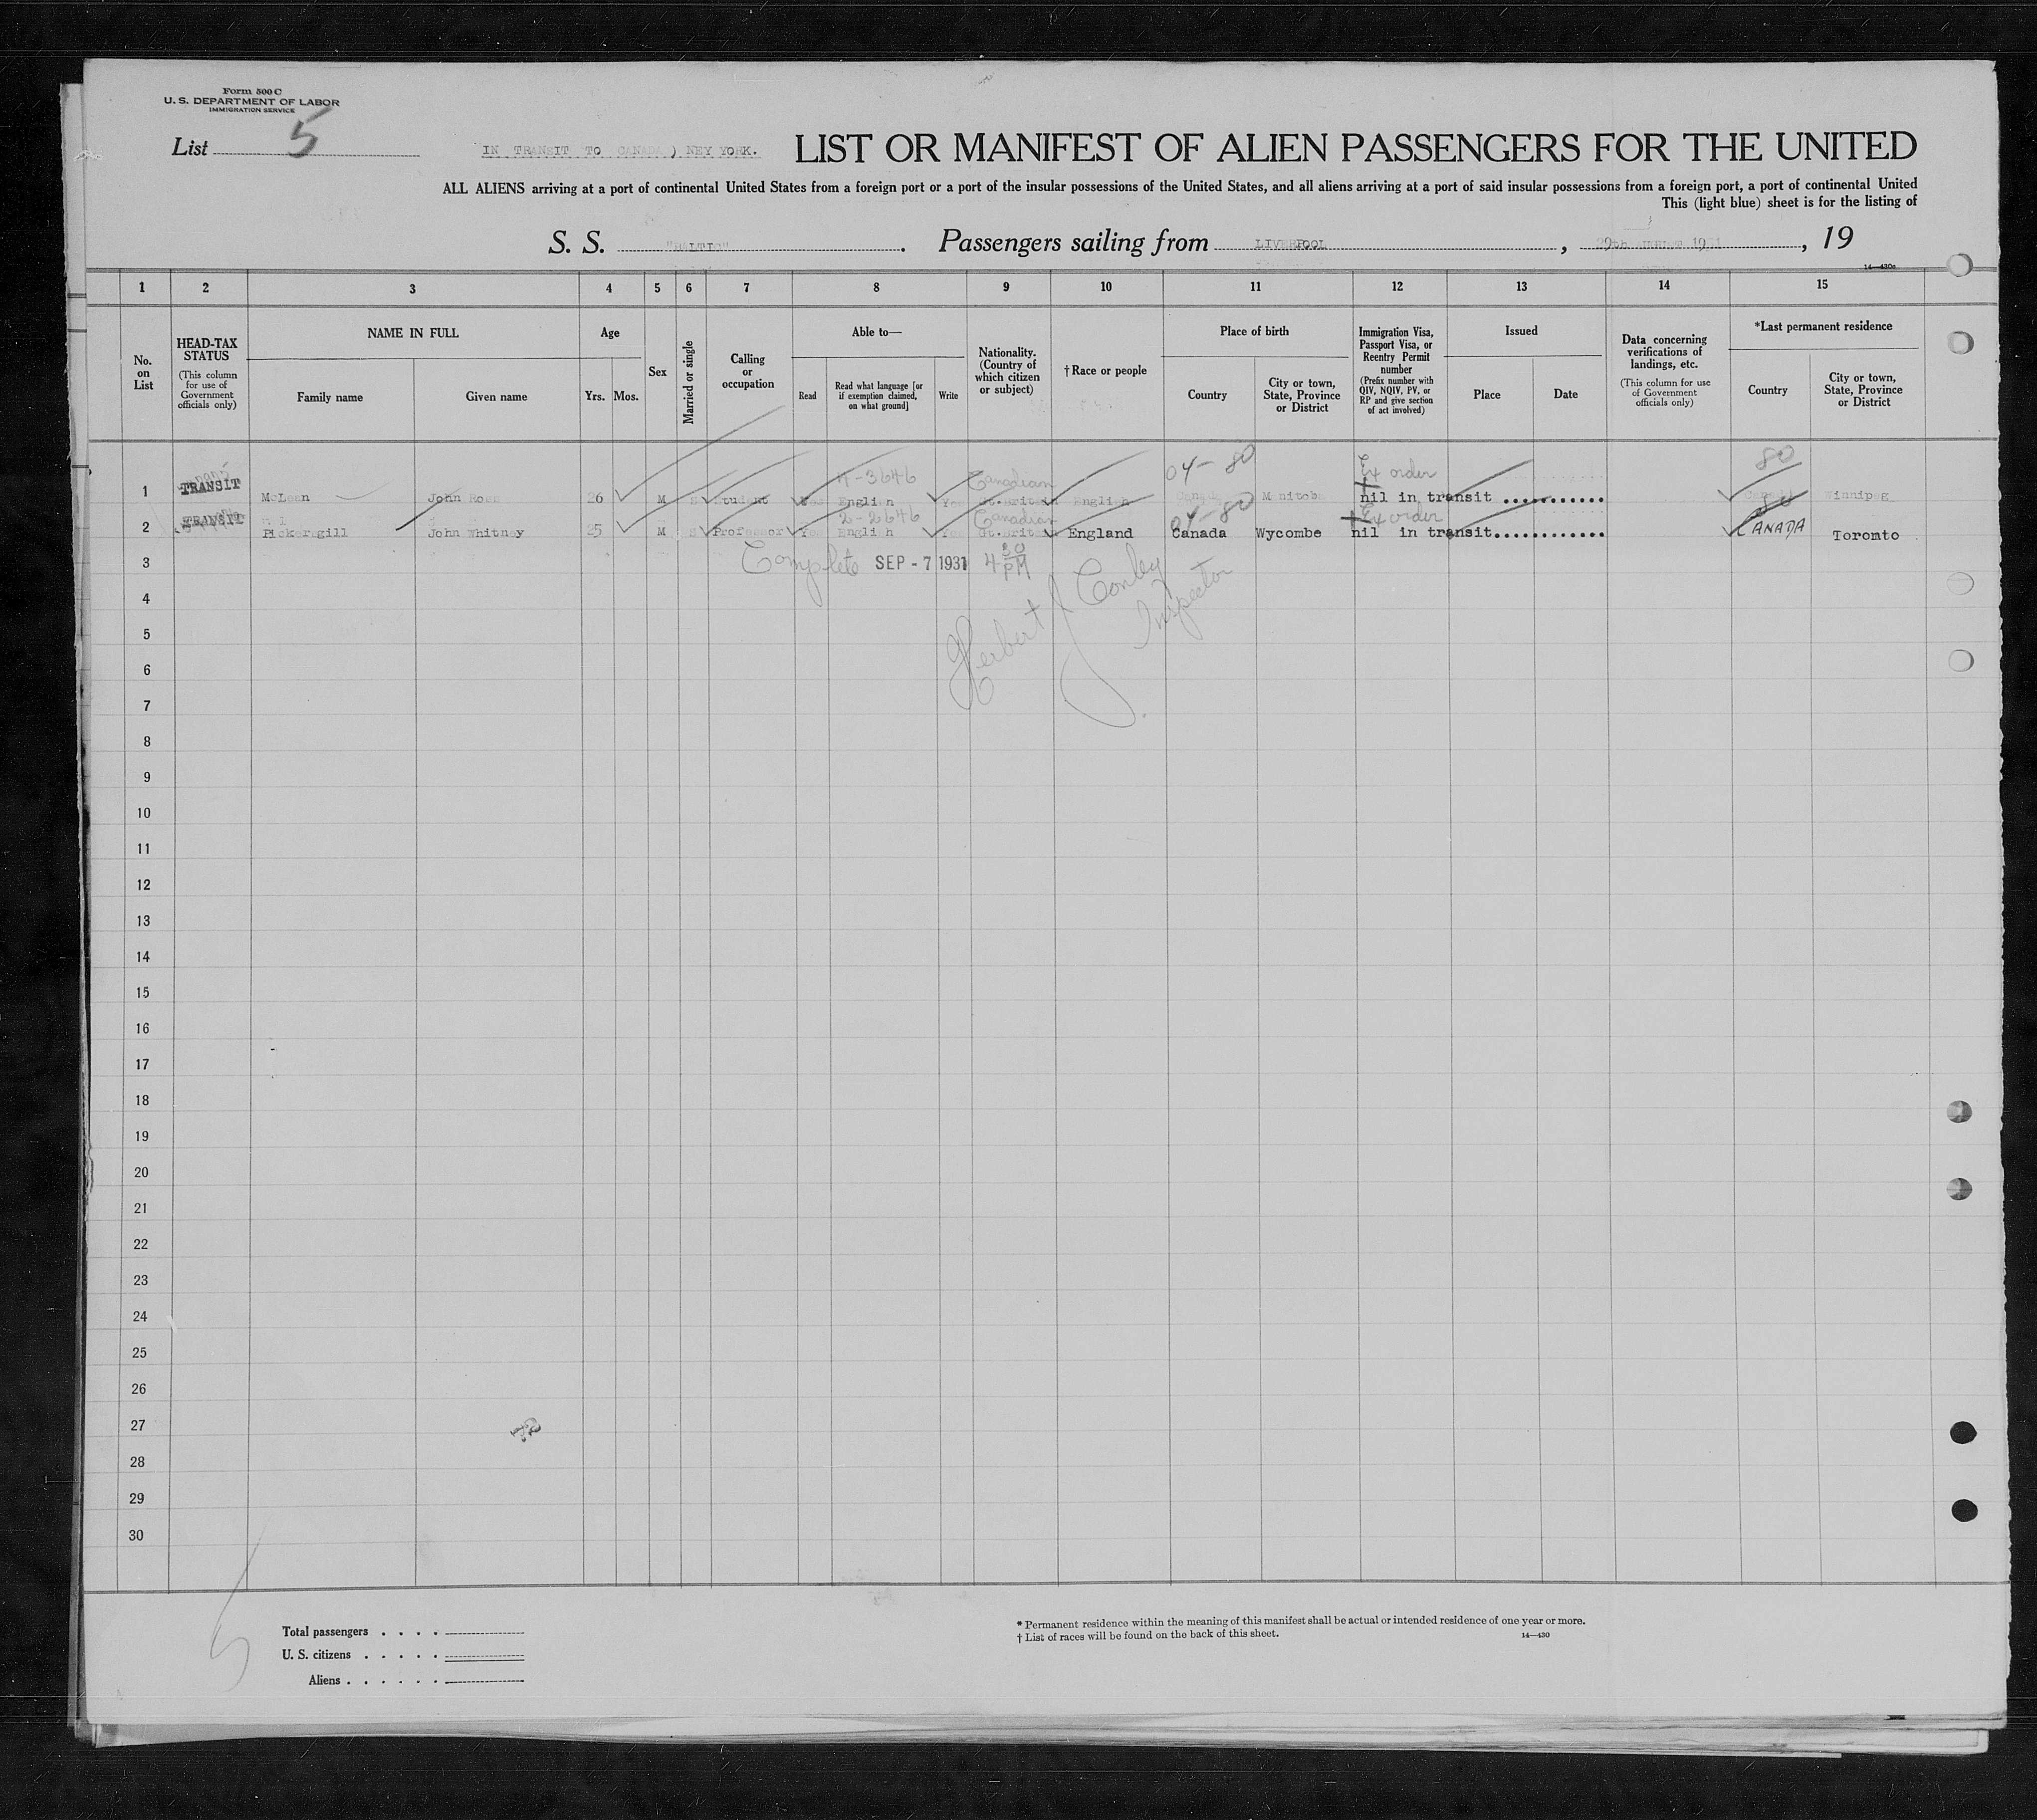 Form 500 C
U. S. DEPARTMENT OF LABOR
IMMIGRATION SERVICE
List 5
IN TRANSIT TO CANADA ) NEY YORK.
LIST OR MANIFEST OF ALIEN PASSENGERS FOR THE UNITED
ALL ALIENS arriving at a port of continental United States from a foreign port or a port of the insular possessions of the United States, and all aliens arriving at a port of said insular possessions from a foreign port, a port of continental United
This (light blue) sheet is for the listing of
S. S. "BALTIC". Passengers sailing from LIVERPOOL, 29th AUGUST 1931, 19
14—430c
1 2 3 4 5 6 7 8 9 10 11 12 13 14 15
No. on List
HEAD-TAX STATUS (This column for use of Government officials only)
NAME IN FULL
Family name
Given name
Age
Yrs. Mos.
Sex
Married or single
Calling or occupation
Able to—
Read
Read what language [or if exemption claimed, on what ground]
Write
Nationality. (Country of which citizen or subject)
†Race or people
Place of birth
Country
City or town, State, Province or District
Immigration Visa, Passport Visa, or Reentry Permit number (Prefix number with QIV, NQIV, PV, or RP and give section of act involved)
Issued
Place
Date
Data concerning verifications of landings, etc. (This column for use of Government officials only)
*Last permanent residence
Country
City or town, State, Province or District
4-3646 Canadian 04-80 Ex order 80
1 TRANSIT McLean John Ross 26 M S Student Yes English Yes Gt.Britain English Canada Manitoba nil in transit ........... Canada Winnipeg
2-2646 Canadian 04-80 Ex order 80
2 TRANSIT Pickersgill John Whitney 25 M S Professor Yes English Yes Gt.Britain England Canada Wycombe nil in transit............ CANADA Toronto
3 Complete SEP - 7 1931 4 30 PM
4
Herbert J Conley
Inspector
5
6
7
8
9
10
11
12
13
14
15
16
17
18
19
20
21
22
23
24
25
26
27
28
29
30
5
Total passengers . . . .
U. S. citizens . . . . .
Aliens . . . . . .
* Permanent residence within the meaning of this manifest shall be actual or intended residence of one year or more.
† List of races will be found on the back of this sheet.
14—430